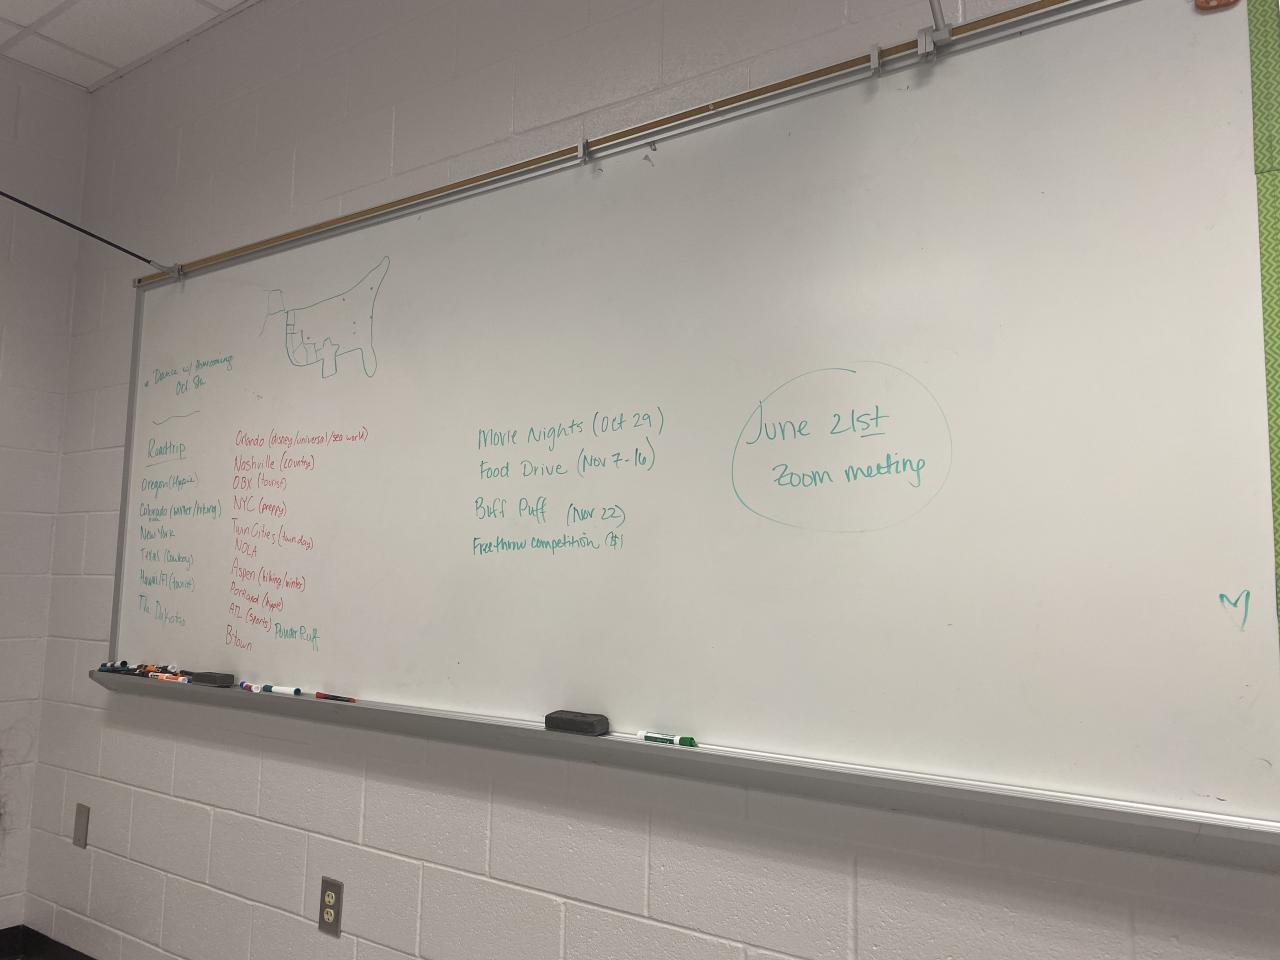 • Dance w/ Homecoming
Oct. 8th
Roadtrip
Oregon (Hippie)
Colorado (winter/hiking)
New York
Texas (Cowboy)
Hawaii/Fl (tourist)
The Dakotas
Orlando (disney/universal/sea world)
Nashville (country)
OBX (tourist)
NYC (preppy)
Twin Cities (twin day)
NOLA
Aspen (hiking/winter)
Portland (hippie)
ATL (sports)
Powder Puff
Btown
Movie Nights (Oct 29)
Food Drive (Nov 7-16)
Buff Puff (Nov 22)
Freethrow competition ($1
June 21st
Zoom meeting